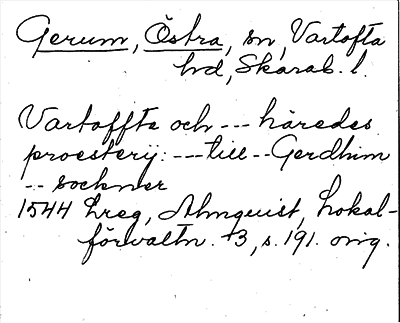 Gerum, Östra, sn, Vartofta
hd, Skarab. l.
Vartoffta och --- häredes
proesterij: --- till -- Gerdhim
-- sockner
1544 Lreg, Almquist, Lokal-
förvaltn. 3, s. 191. orig.